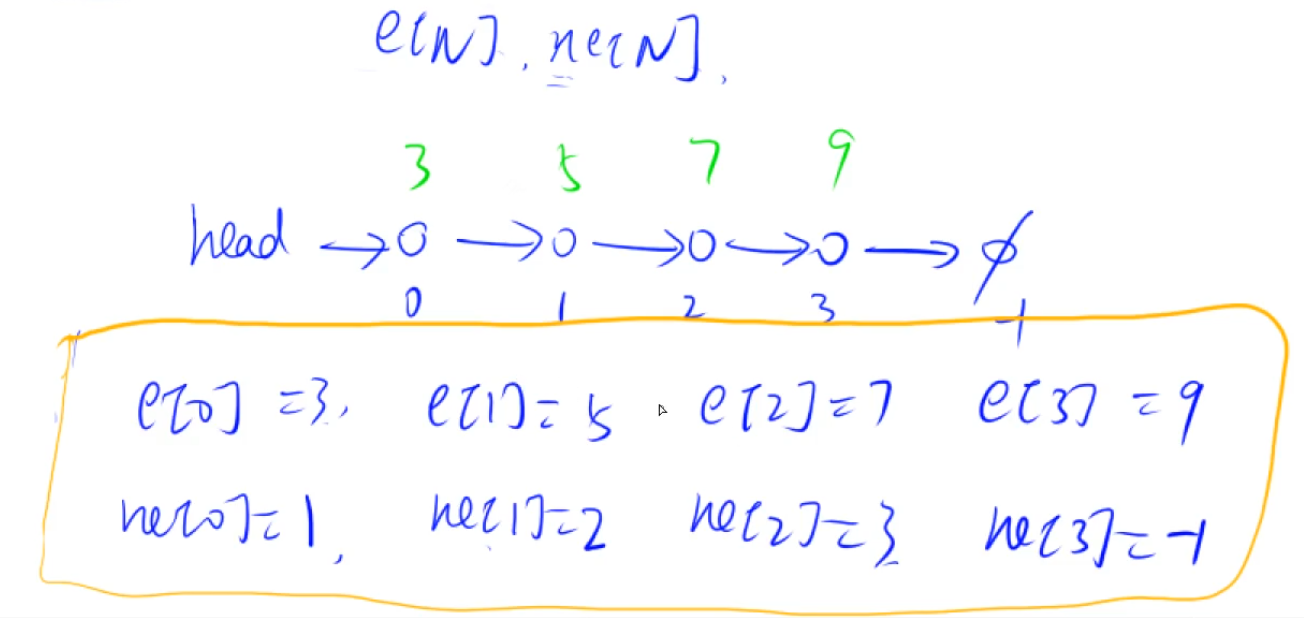 e[N], ne[N],
3 5 7 9
head → o → o → o → o → ∅
0 1 2 3 -1
e[0]=3, e[1]=5 e[2]=7 e[3]=9
ne[0]=1, ne[1]=2 ne[2]=3 ne[3]=-1